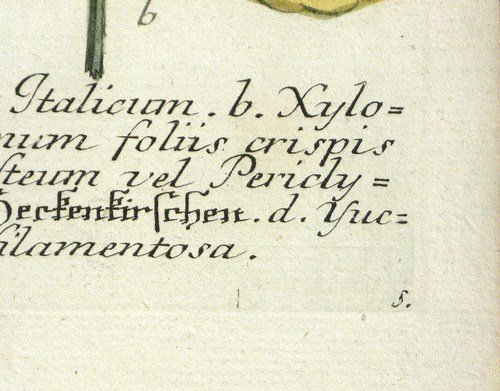 b
Italicum . b. Xylo=
num foliis crispis
steum vel Pericly=
Heckenkirschen . d. Yuc=
ilamentosa .
5.